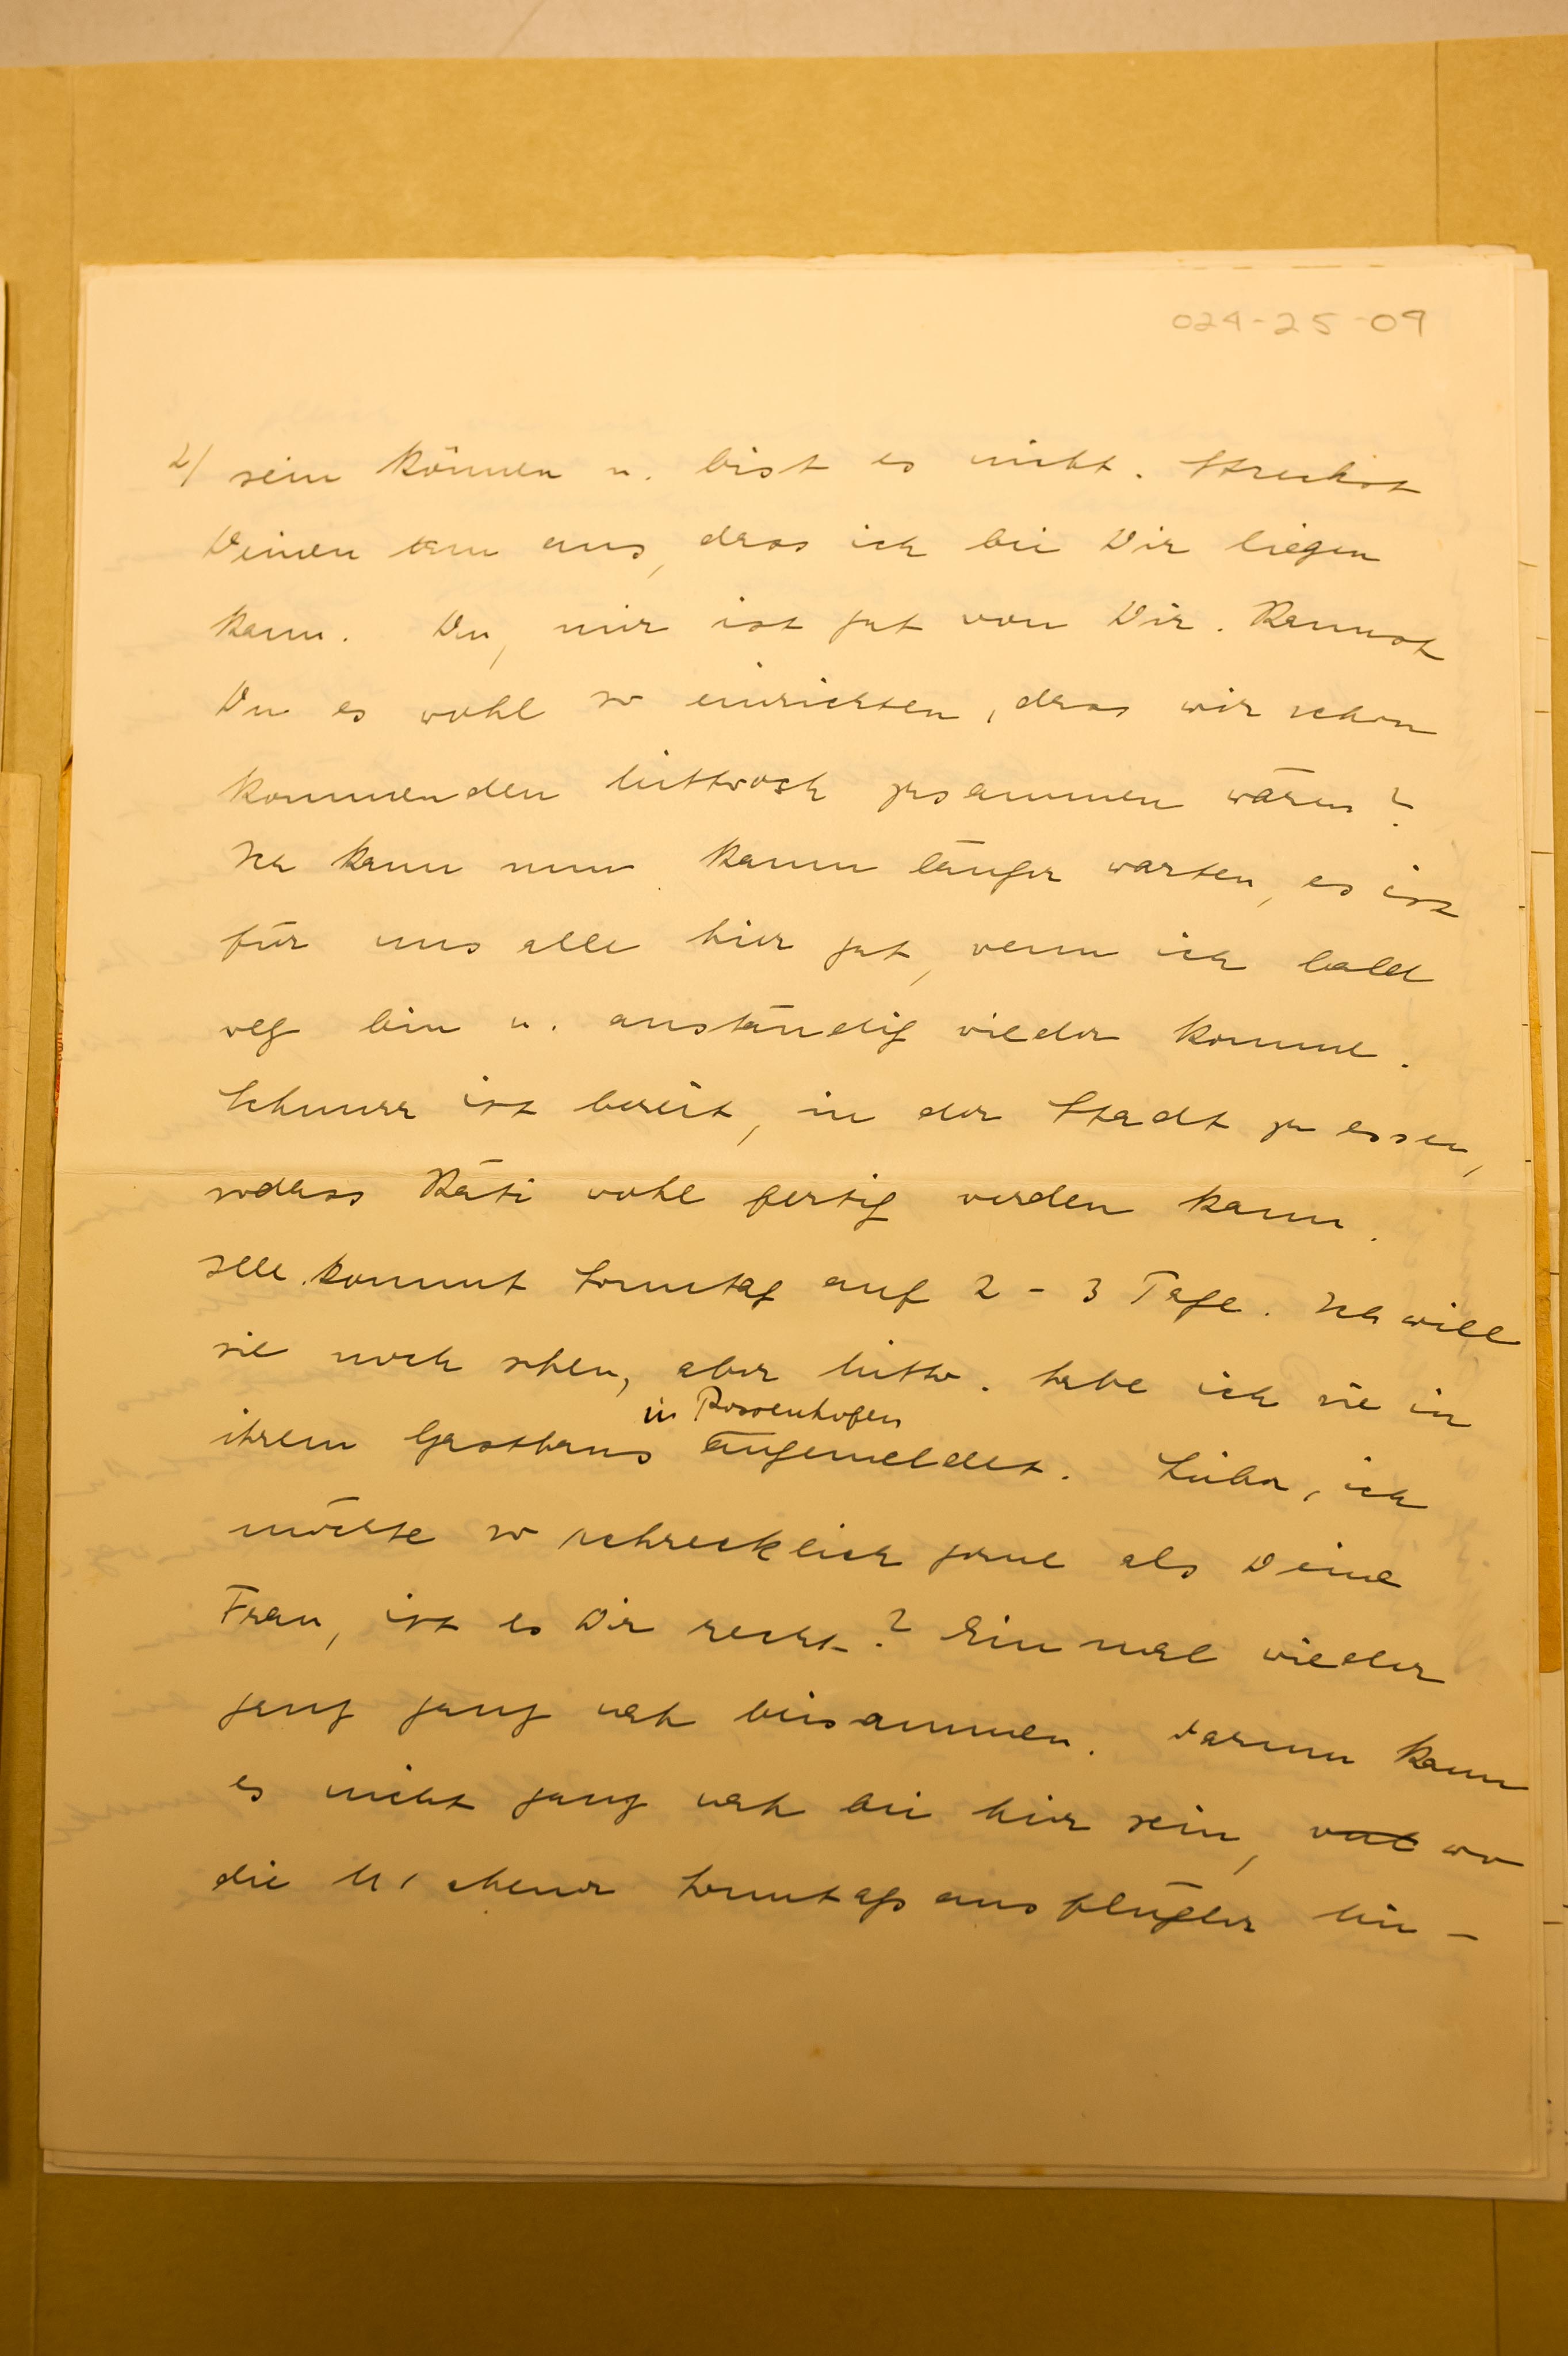 024-25-09
2/ sein können u. bist es nicht. Streckst
Deinen Arm aus, dass ich bei Dir liegen
kann. Du, mir ist gut von Dir. Kannst
Du es wohl so einrichten, dass wir schon
kommenden Mittwoch zusammen wären?
Ich kann nun kaum länger warten, es ist
für uns alle hier gut, wenn ich bald
weg bin u. anständig wieder komme.
Schnurr ist bereit, in der Stadt zu essen,
sodass Käti wohl fertig werden kann.
Ille kommt Sonntag auf 2 - 3 Tage. Ich will
sie noch sehen, aber Mittw. habe ich sie in
in Possenhofen
ihrem Gasthaus angemeldet. Lieber, ich
möchte so schrecklich gerne als Deine
Frau, ist es Dir recht? Einmal wieder
ganz ganz nah beisammen. Darum kann
es nicht ganz nah bei hier sein, wo
die Münchener Sonntagsausflügler hin-